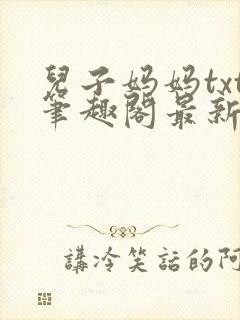 兒子妈妈txt
筆趣閣最新
講冷笑話的阿